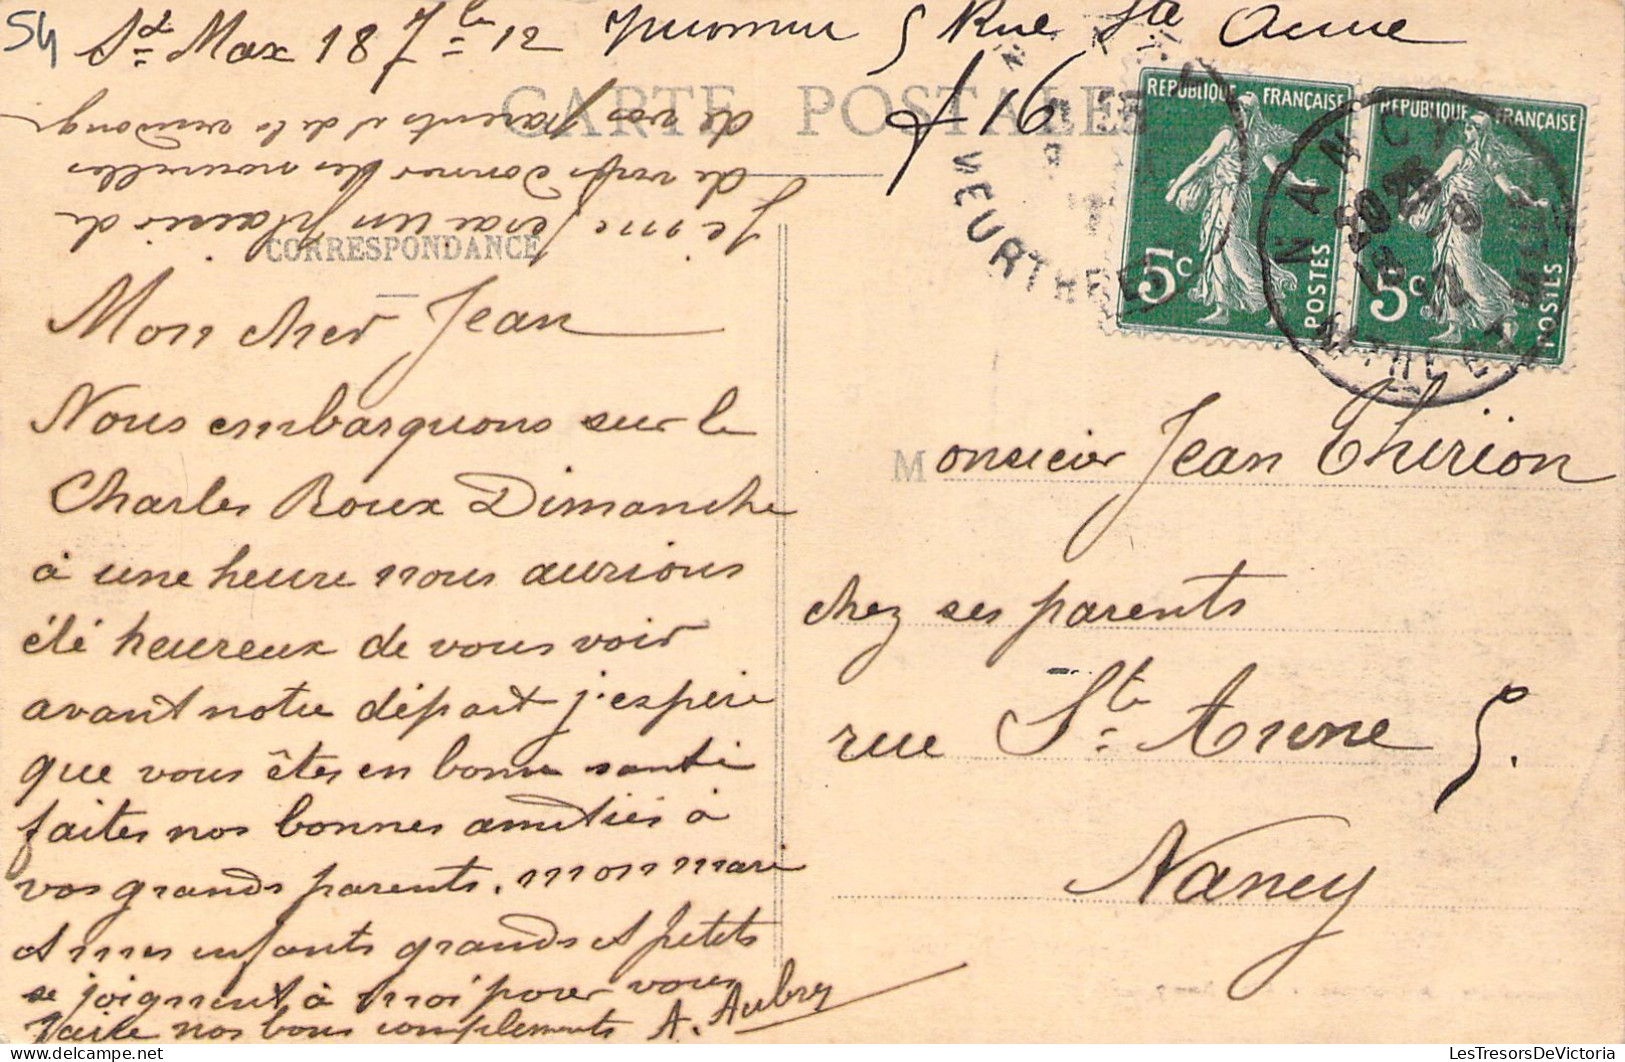 54
St Max 18 7bre 12
5 Rue Ste Anne
f 16
CARTE POSTALE
Je me ferai un plaisir de
de vous donner des nouvelles
de vos parents et de la
CORRESPONDANCE
Mon cher Jean
Nous embarquons sur le
Charles Roux Dimanche
à une heure nous aurions
été heureux de vous voir
avant notre départ j'espère
que vous êtes en bonne santé
faites nos bonnes amitiés à
vos grands parents. mon mari
et mes enfants grands et petits
se joignent à moi pour vous
faire nos bons compliments A. Aubry
REPUBLIQUE FRANÇAISE
5c
POSTES
REPUBLIQUE FRANÇAISE
5c
POSTES
NANCY
MEURTHE
Monsieur Jean Thirion
chez ses parents
rue Ste Anne 5.
Nancy
LesTresorsDeVictoria